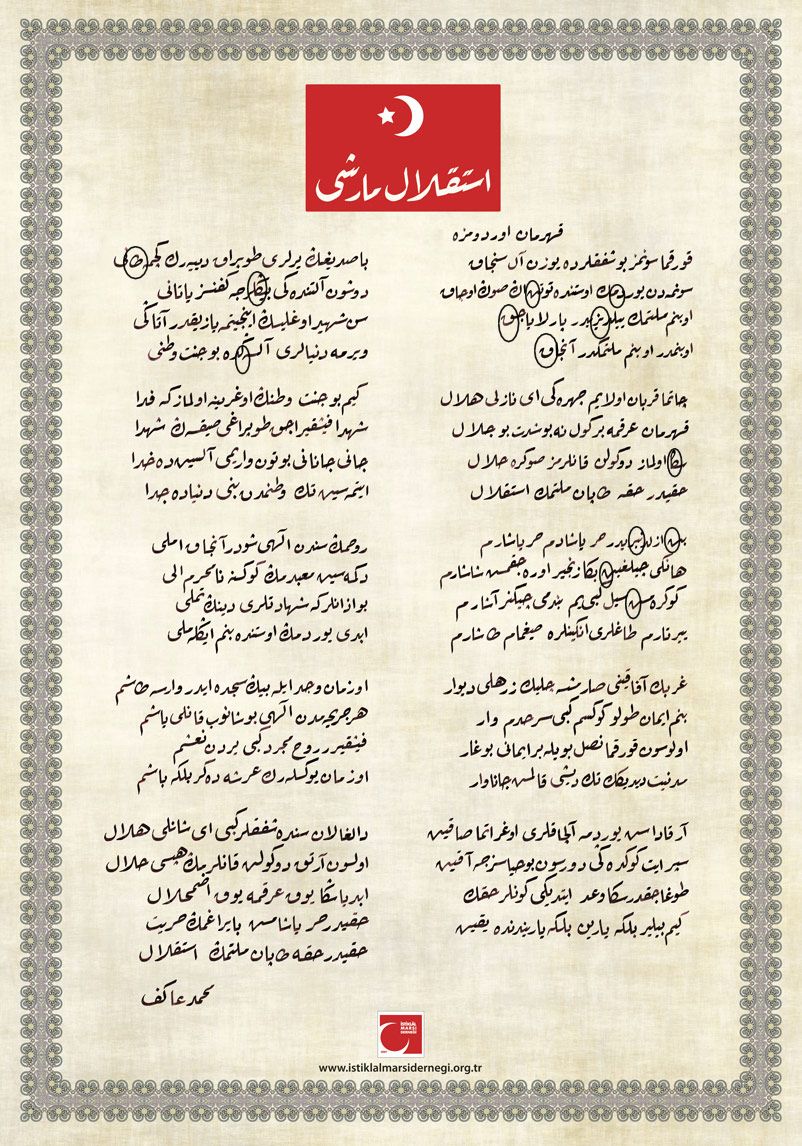 استقلال مارشی
قهرمان اوردومزه
قورقما سونمز بو شفقلرده یوزن آل سنجاق
سونمدن یوردمك اوستنده توتن اك صوك اوجاق
او بنم ملتمك ییلدیزیدر پارلایاجق
او بنمدر او بنم ملتمكدر آنجاق
چاتما قربان اولایم چهره كی ای نازلی هلال
قهرمان عرقمه بر كول نه بو شدت بو جلال
سكا اولماز دوكولن قانلرمز صوكره حلال
حقیدر حقه طاپان ملتمك استقلال
بن ازلدنبریدر حر یاشادم حر یاشارم
هانكی چیلغین بكا زنجیر اوره جقمش شاشارم
كوكره مش سیل كبی یم بندمی چیكنر آشارم
ییرتارم طاغلری انكینلره صیغمام طاشارم
غربك آفاقینی صارمشسه چلیك زرهلی دیوار
بنم ایمان طولو كوكسم كبی سرحدم وار
اولوسون قورقما نصل بویله بر ایمانی بوغار
مدنیت دیدیكك تك دیشی قالمش جاناوار
آرقاداش یوردمه آلچاقلری اوغراتما صاقین
سپر ایت كوكده كی دورسون بو حیاسزجه آقین
طوغاجقدر سكا وعد ایتدیكی كونلر حقك
كیم بیلیر بلكه یارین بلكه یاریندنده یقین
باصدیغك یرلری طوپراق دییه رك كچمه طانی
دوشون آلتنده كی بیكلرجه كفنسز یاتانی
سن شهید اوغلیسك اینجیتمه یازیقدر آتاكی
ویرمه دنیالری آلسه كده بو جنت وطنی
كیم بو جنت وطنك اوغرینه اولماز كه فدا
شهدا فیشقیراجق طوپراغی صیقسه ك شهدا
جانی جانانی بوتون واریمی آلسین ده خدا
ایتمه سین تك وطنمدن بنی دنیاده جدا
روحمك سندن الهی شودر آنجاق املی
دكمه سین معبدمك كوكسنه نامحرم الی
بو اذانلر كه شهادتلری دینك تملی
ابدی یوردمك اوستنده بنم ایكله ملی
او زمان وجد ایله بیك سجده ایدر وارسه طاشم
هر جریحه مدن الهی بوشانوب قانلی یاشم
فیشقیرر روح مجرد كبی یردن نعشم
او زمان یوكسله رك عرشه دكر بلكه باشم
دالغالان سنده شفقلر كبی ای شانلی هلال
اولسون آرتق دوكولن قانلرمك هپسی حلال
ابدیا سكا یوق عرقمه یوق اضمحلال
حقیدر حر یاشامش بایراغمك حریت
حقیدر حقه طاپان ملتمك استقلال
محمد عاكف
İSTİKLÂL
MARŞI
DERNEĞİ
www.istiklalmarsidernegi.org.tr